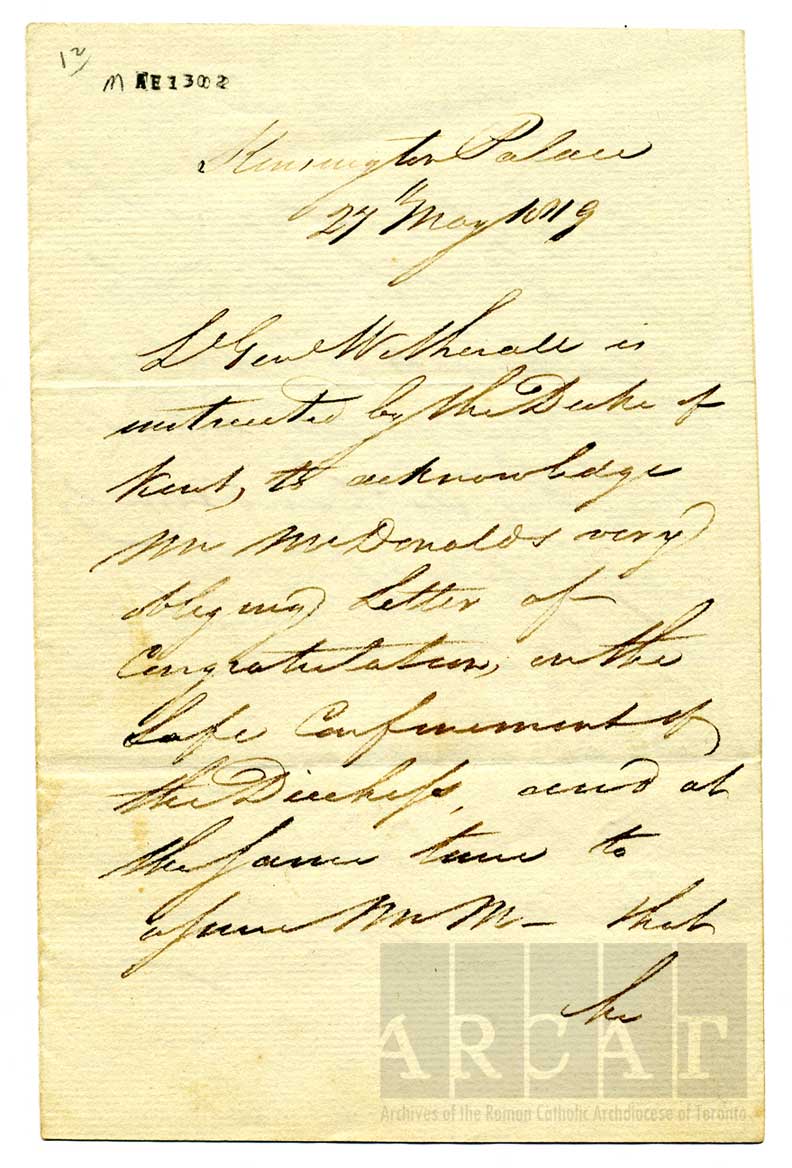 12)
M AE1302
Kensington Palace
27th May 1819
Lt Genl Wetherall is
instructed by the Duke of
Kent, to acknowledge
Mr McDonald's very
obliging Letter of
Congratulation, on the
Safe Confinement of
the Duchess, and at
the same time to
assure Mr M— that
he
ARCAT
Archives of the Roman Catholic Archdiocese of Toronto